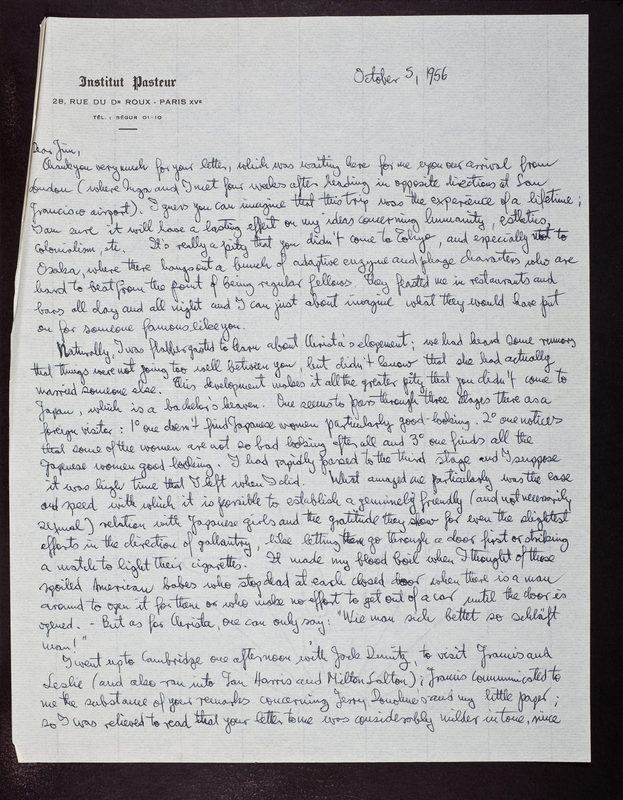 Institut Pasteur
28, RUE DU Dr ROUX - PARIS XVe
TÉL. : SÉGUR 01-10
October 5, 1956
Dear Jim,
Thank you very much for your letter, which was waiting here for me upon our arrival from
London (where Inga and I met four weeks after heading in opposite directions at San
Francisco airport). I guess you can imagine that this trip was the experience of a lifetime;
I am sure it will have a lasting effect on my ideas concerning humanity, esthetics,
colonialism, etc. It's really a pity that you didn't come to Tokyo, and especially not to
Osaka, where there hangs out a bunch of adaptive enzyme and phage characters who are
hard to beat from the point of being regular fellows. They feasted me in restaurants and
bars all day and all night and I can just about imagine what they would have put
on for someone famous like you.
Naturally, I was flabbergasted to learn about Christa's elopement; we had heard some rumors
that things were not going too well between you, but didn't know that she had actually
married someone else. This development makes it all the greater pity that you didn't come to
Japan, which is a bachelor's heaven. One seems to pass through three stages there as a
foreign visitor: 1° one doesn't find Japanese women particularly good-looking. 2° one notices
that some of the women are not so bad looking after all and 3° one finds all the
Japanese women good looking. I had rapidly passed to the third stage and I suppose
it was high time that I left when I did. What amazed me particularly was the ease
and speed with which it is possible to establish a genuinely friendly (and not necessarily
sexual) relation with Japanese girls and the gratitude they show for even the slightest
efforts in the direction of gallantry, like letting them go through a door first or striking
a match to light their cigarettes. It made my blood boil when I thought of those
spoiled American babes who stop dead at each closed door when there is a man
around to open it for them or who make no effort to get out of a car until the door is
opened. - But as for Christa, one can only say: "Wie man sich bettet so schläft
man!"
I went up to Cambridge one afternoon with Jack Dunitz, to visit Francis and
Leslie (and also ran into Ian Harris and Milton Salton); Francis communicated to
me the substance of your remarks concerning Jerry Donohue's and my little paper;
so I was relieved to read that your letter to me was considerably milder in tone, since